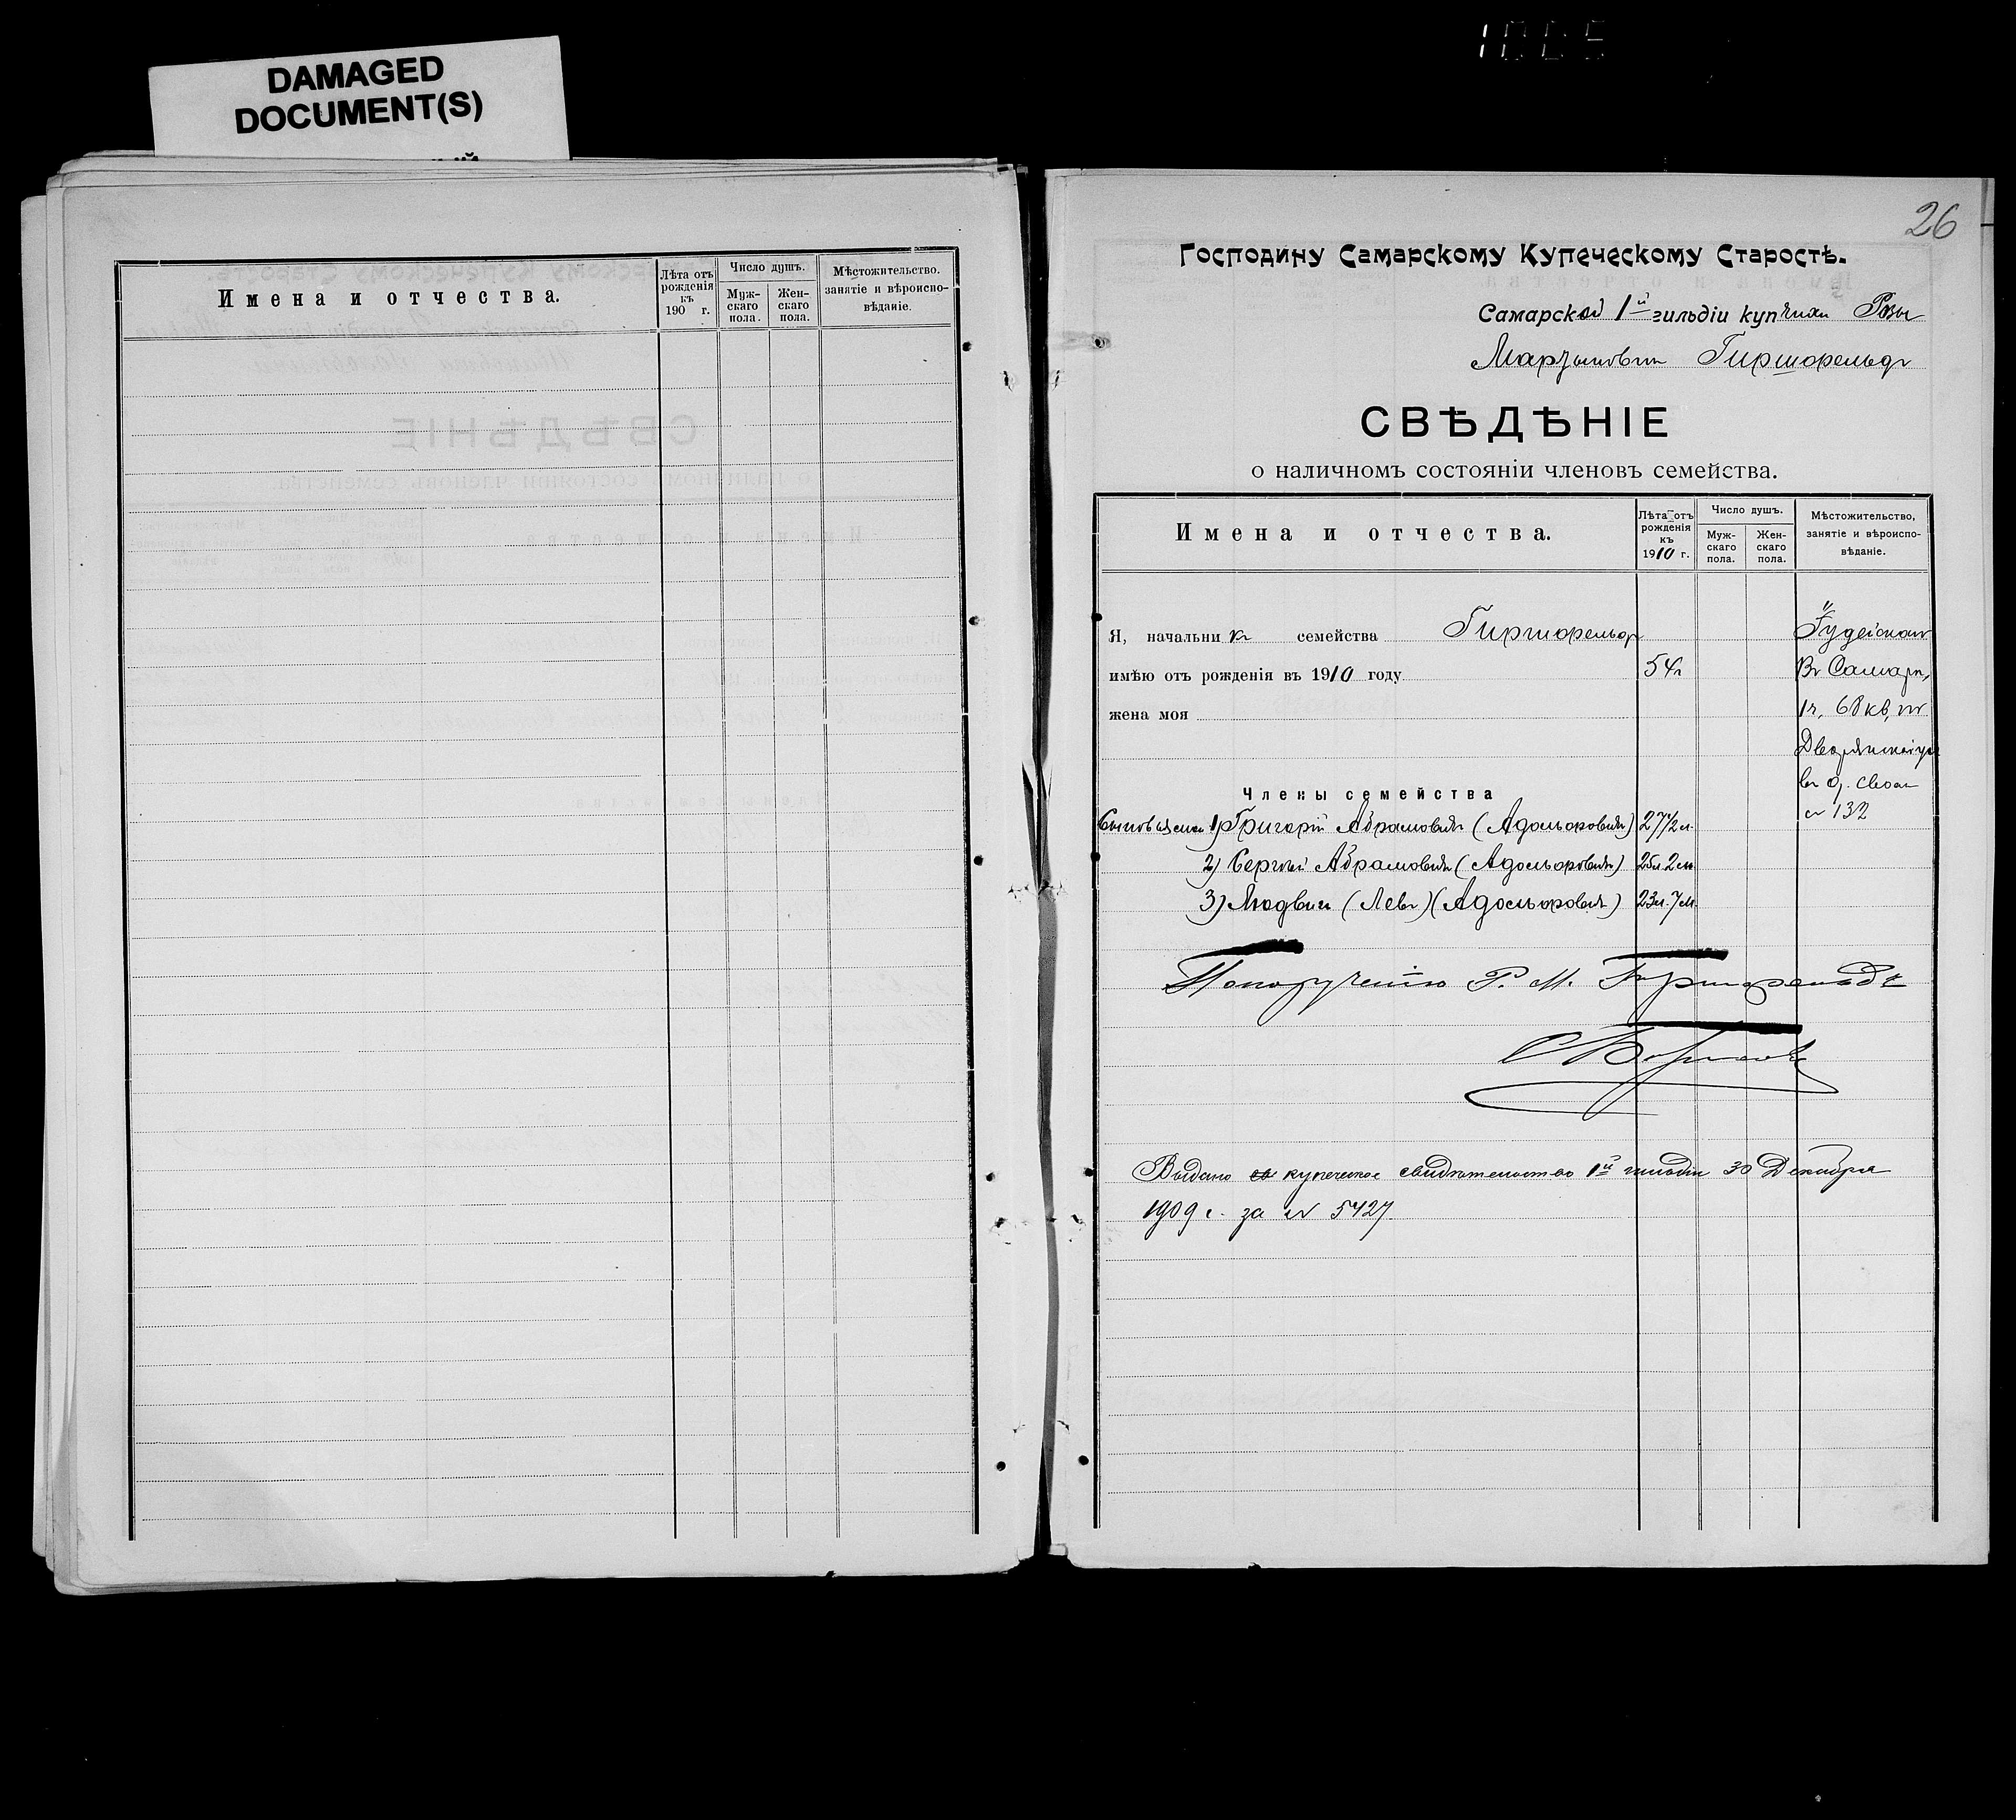 DAMAGED
DOCUMENT(S)
1005
Имена и отчества.
Лѣта отъ рожденія къ 190 г.
Число душъ.
Муж-
скаго
пола.
Жен-
скаго
пола.
Мѣстожительство.
занятіе и вѣроиспо-
вѣданіе.
26
Господину Самарскому Купеческому Старостѣ.
Самарской 1й гильдіи купчихи Розы
Гиршфельдъ
СВѢДѢНІЕ
о наличномъ состояніи членовъ семейства.
Имена и отчества.
Лѣта отъ
рожденія
къ
1910 г.
Число душъ.
Муж-
скаго
пола.
Жен-
скаго
пола.
Мѣстожительство,
занятіе и вѣроиспо-
вѣданіе.
Я, начальникъ семейства Гиршфельдъ Іудейскаго
имѣю отъ рожденія въ 1910 году 54 Въ Самарѣ,
жена моя 1ч, 68 кв, по
Дворянской ул
въ д. своемъ
Члены семейства № 132
Сыновья 1) Григорій Абрамовичъ (Адольфовичъ) 27 1/2 л.
2) Сергѣй Абрамовичъ (Адольфовичъ) 25л 2м
3) Людвигъ (Левъ) (Адольфовичъ) 23л. 7м.
По порученію Р. М. Гиршфельдъ
Выдано купеческое свидѣтельство 1й гильдіи 30 Декабря
1909 г. за № 5427